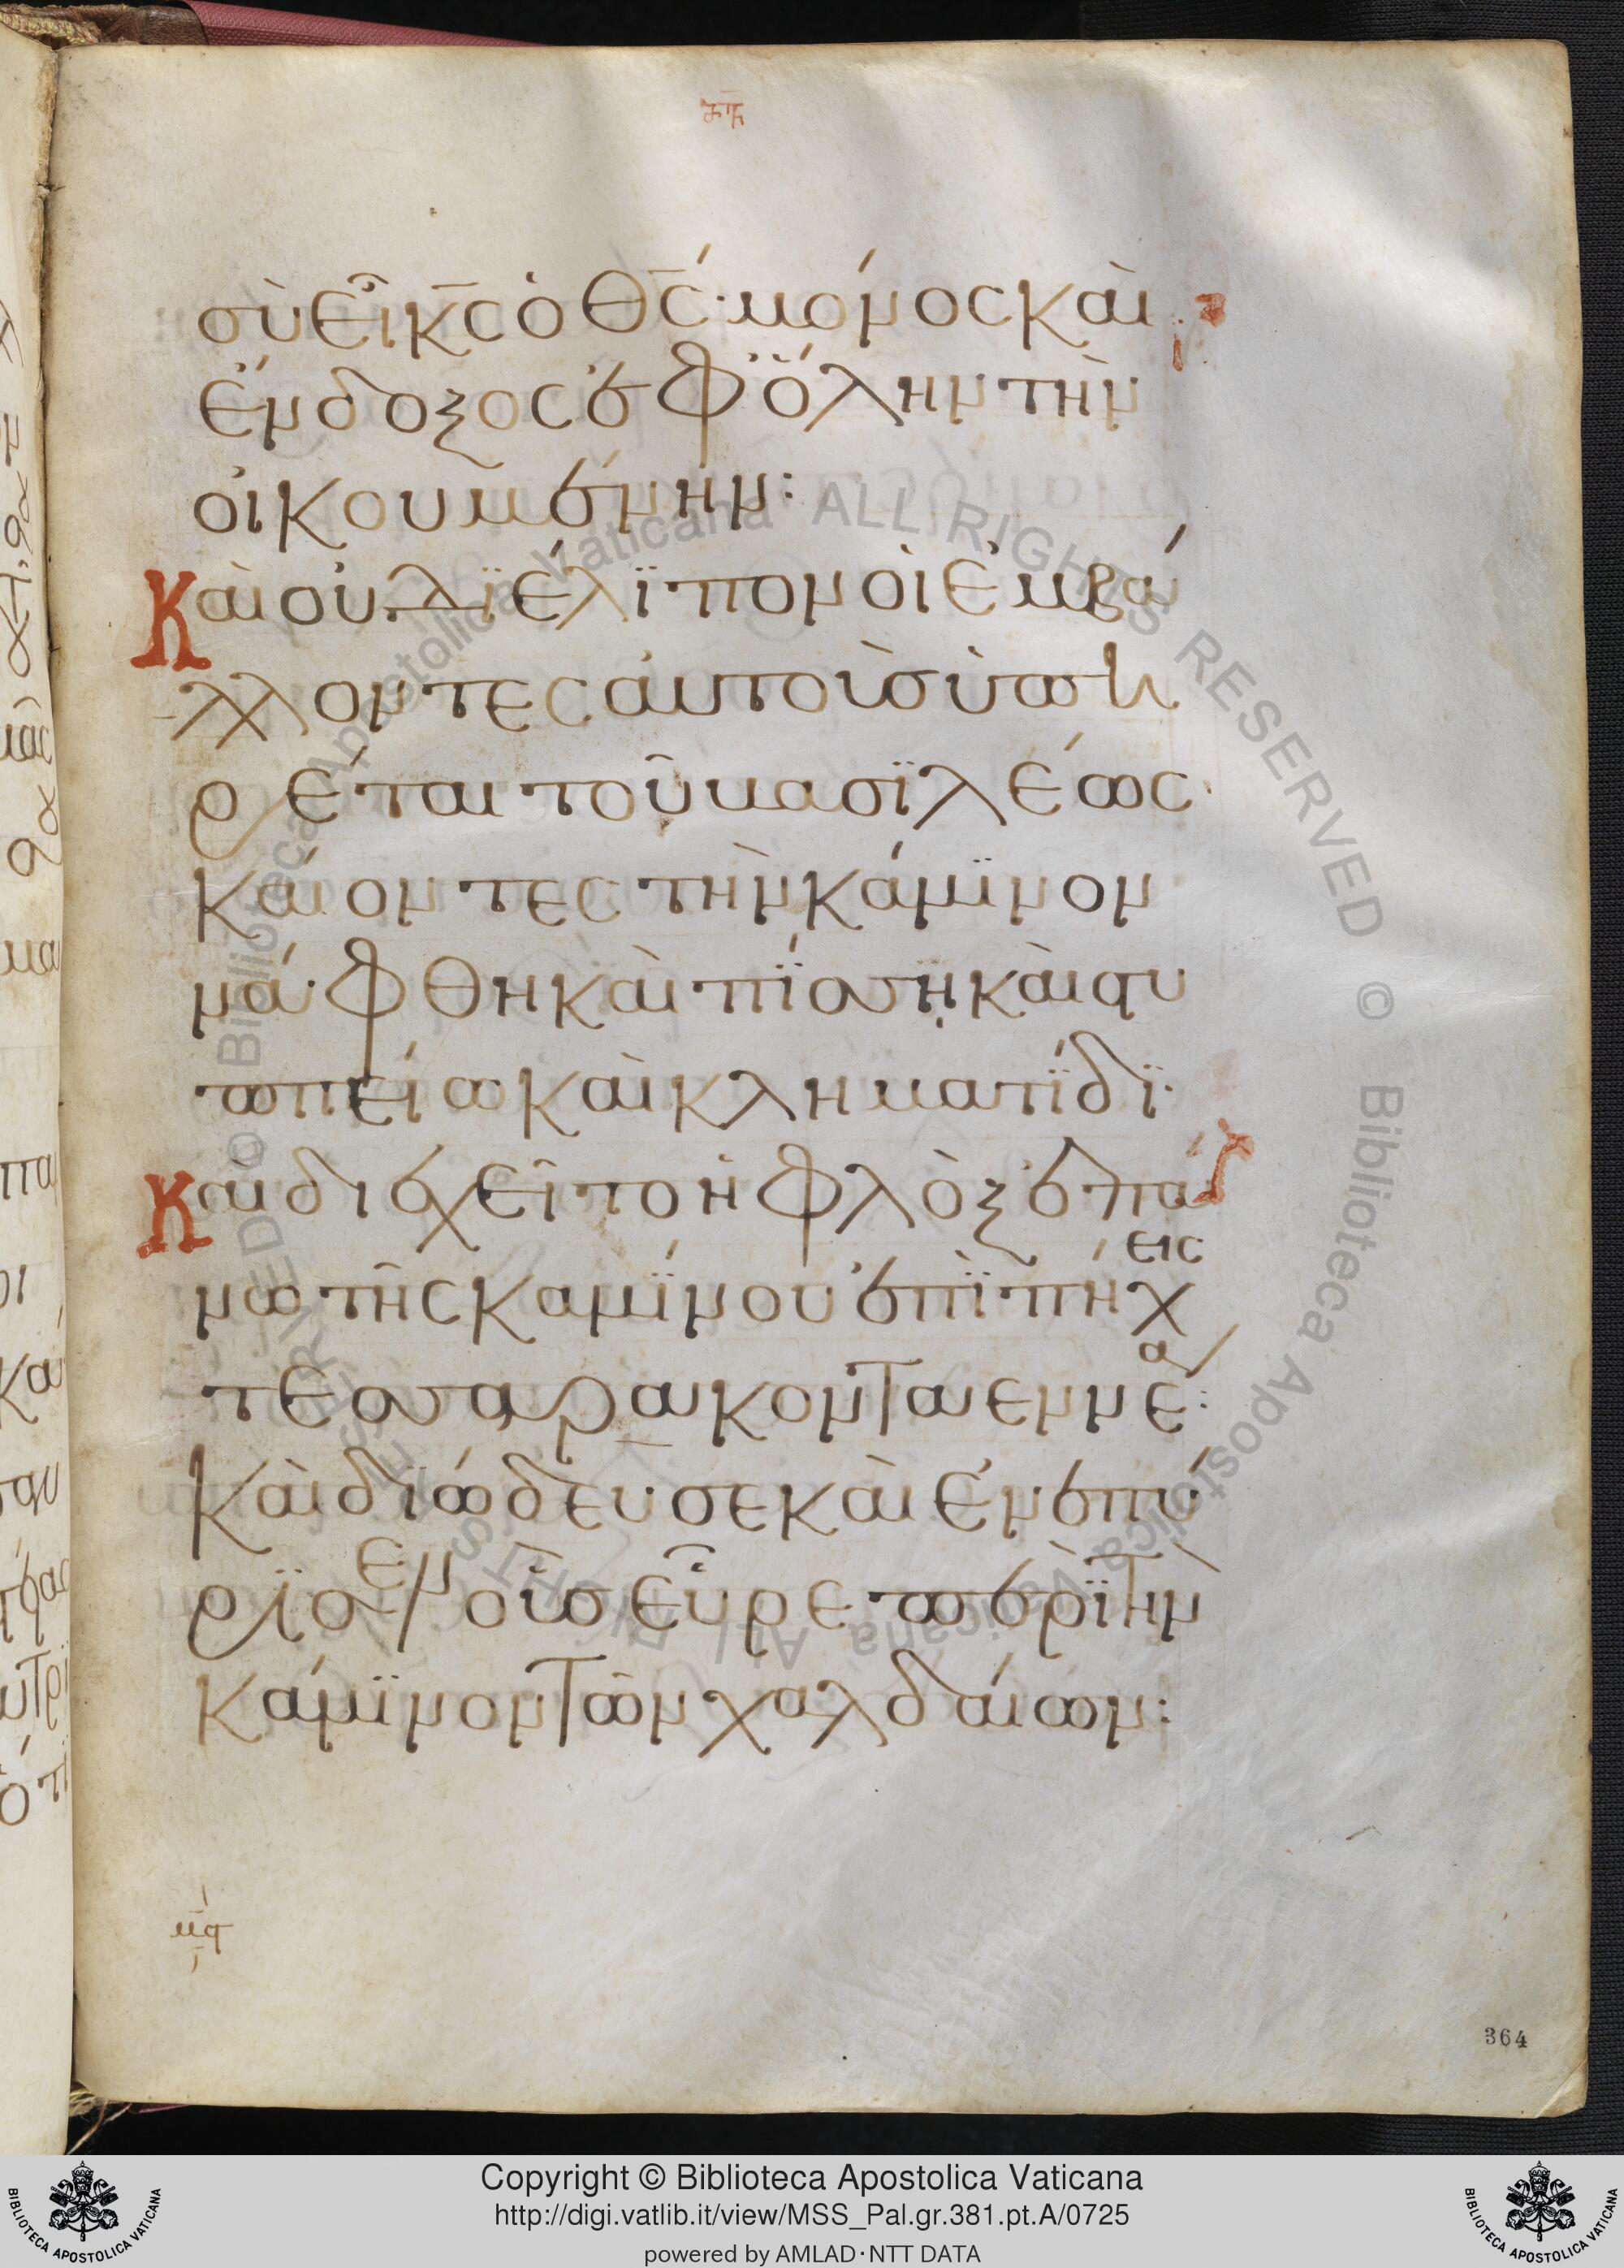 σὺ εἶ κ̅ς̅ ὁ θ̅ς̅· μόνος καὶ
ἔνδοξος ἐφ ὅλην τὴν
οἰκουμένην:
Καὶ οὐ διέλϊπον οἱ ἐμβα
λλοντες αὐτοὺσ ὑπη
ρέται τοῦ βασϊλέως·
καίοντες τὴν κάμϊνον
νάφθη καὶ πΐσση καὶ στυ
ππείω καὶ κληματΐδϊ·
Καὶ διεχεῖτο ἡ φλὸξ ἐπά
νω τῆς καμΐνου ἐπῒ πήχεις
τεσσαρακονταεννέα:
Καὶ διώδευσε καὶ ἐνεπύ
ρϊσεν οὓσ εὗρε περῒ τὴν
κάμϊνον τῶν χαλδαίων:
364
ALL RIGHTS RESERVED © Biblioteca Apostolica Vaticana
Copyright © Biblioteca Apostolica Vaticana
http://digi.vatlib.it/view/MSS_Pal.gr.381.pt.A/0725
powered by AMLAD·NTT DATA
BIBLIOTECA APOSTOLICA VATICANA
BIBLIOTECA APOSTOLICA VATICANA